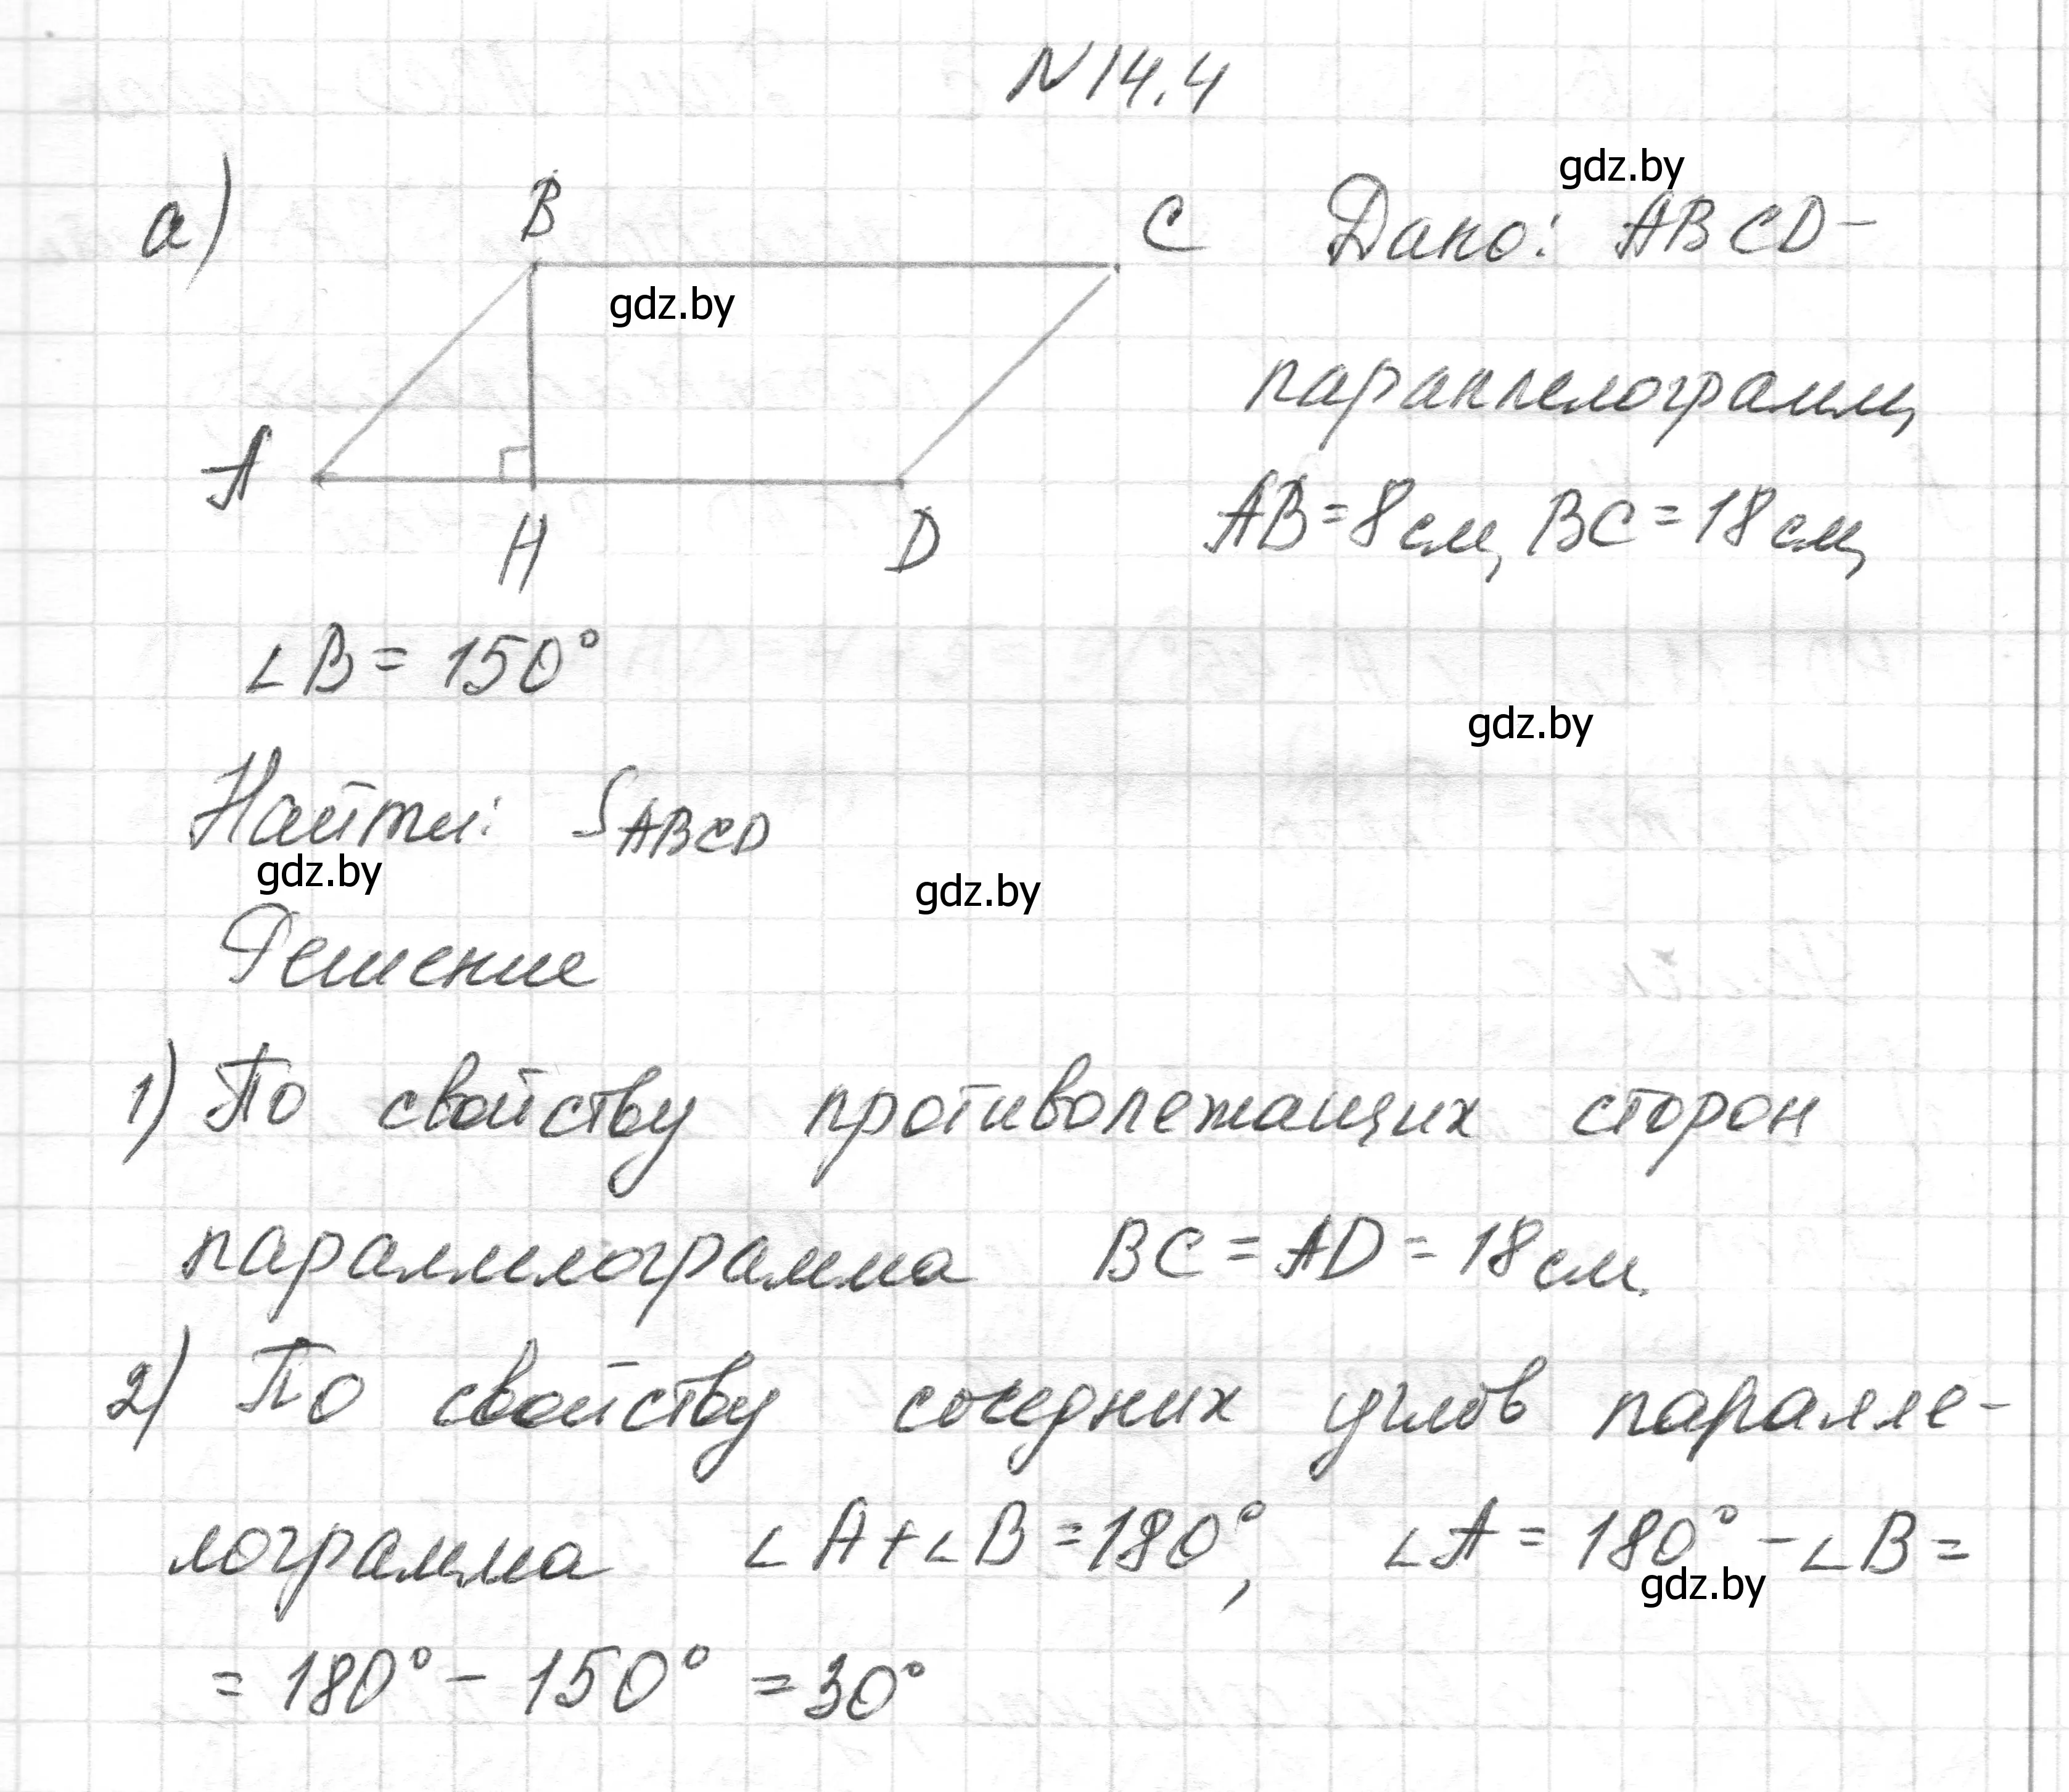 N 14.4
gdz.by
а)
B
C
Дано: ABCD-
gdz.by
параллелограмм,
A
H
D
AB = 8 см, BC = 18 см,
∠B = 150°
gdz.by
Найти: S ABCD
gdz.by
gdz.by
Решение
1) По свойству противолежащих сторон
параллелограмма BC = AD = 18 см.
2) По свойству соседних углов паралле-
лограмма ∠A + ∠B = 180°, ∠A = 180° - ∠B =
gdz.by
= 180° - 150° = 30°